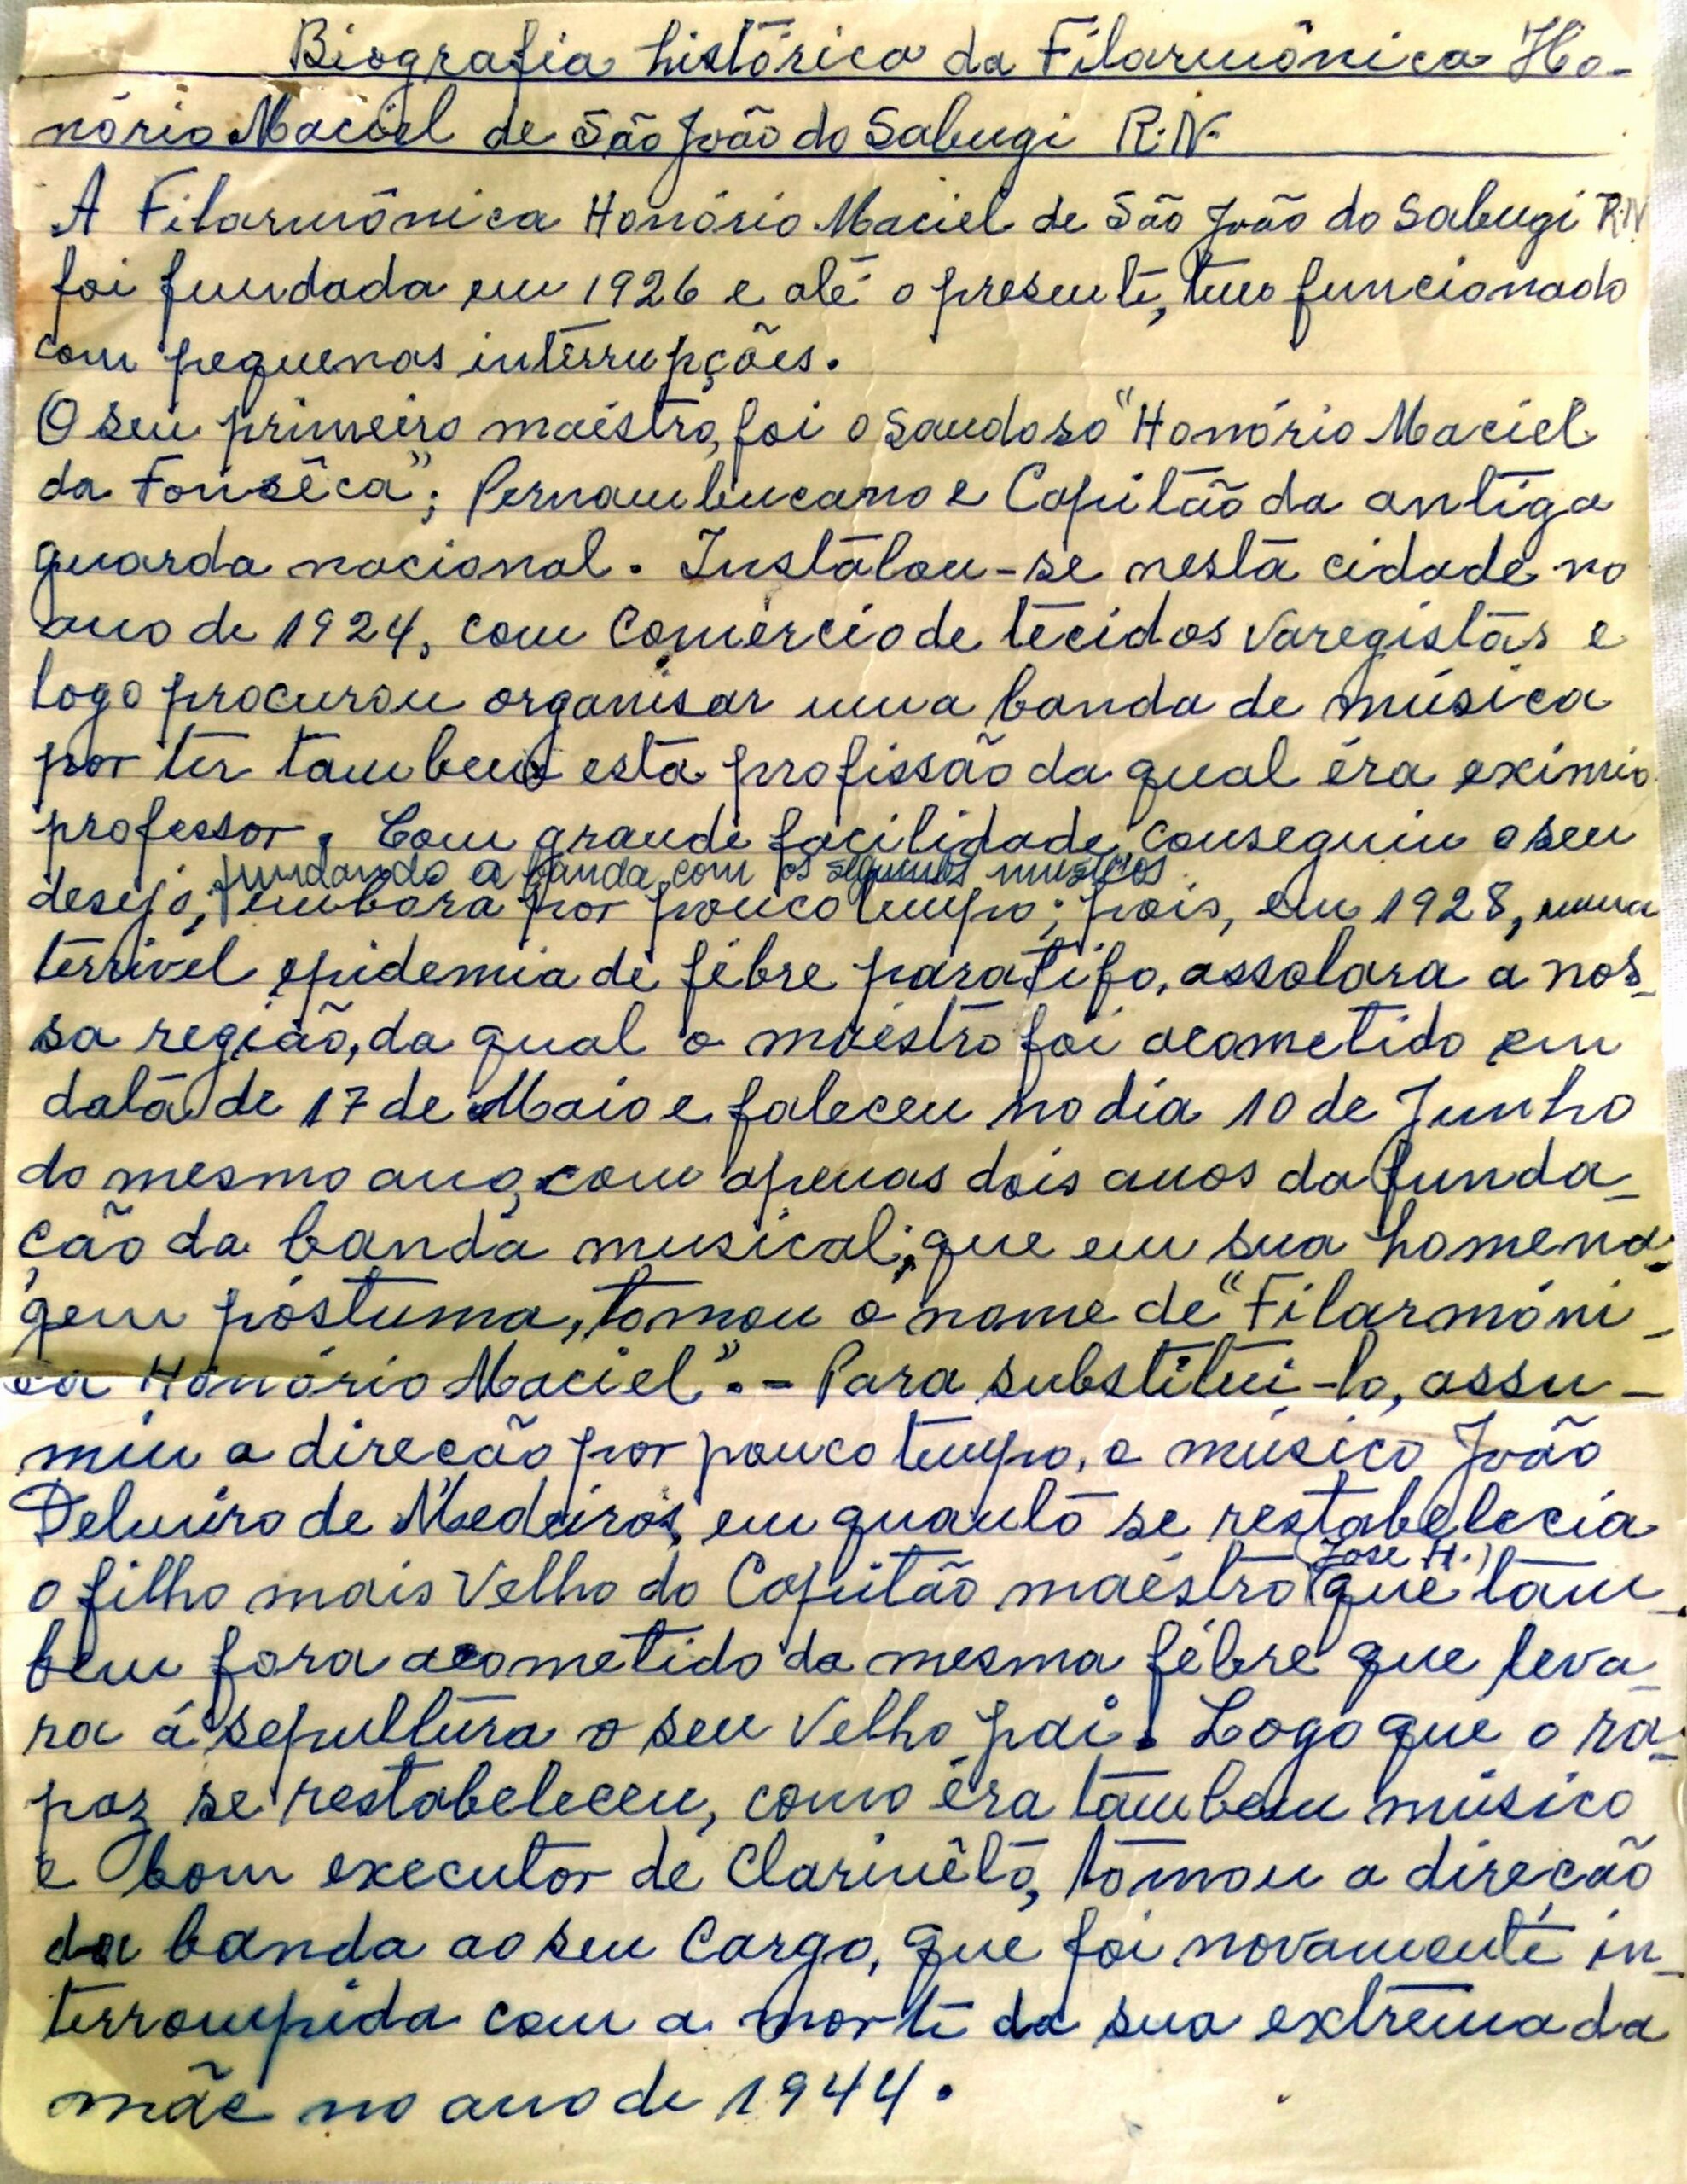 Biografia histórica da Filarmônica Ho-
nório Maciel de São João do Sabugi R.N.
A Filarmônica Honório Maciel de São João do Sabugi R.N
foi fundada em 1926 e até o presente, tem funcionado
com pequenas interrupções.
O seu primeiro maéstro, foi o saudoso "Honório Maciel
da Fonsêca"; Pernambucano e Capitão da antiga
guarda nacional. Instalou-se nesta cidade no
ano de 1924, com Comércio de tecidos varegistas e
logo procurou organisar uma banda de música
por ter tambem esta profissão da qual éra exímio
professor. Com grande facilidade, conseguiu o seu
fundando a banda com os seguintes musicos
desejo; embora por pouco tempo; pois, em 1928, uma
terrível epidemia de fébre paratifo, assolara a nos-
sa região, da qual o maéstro foi acometido em
data de 17 de Maio e faleceu no dia 10 de Junho
do mesmo ano, com apenas dois anos da funda-
ção da banda musical; que em sua homena-
gem póstuma, tomou o nome de "Filarmóni-
ca Honório Maciel". - Para substituí-lo, assu-
miu a direcão por pouco tempo, o músico João
Delmiro de Medeiros, em quanto se restabelecia
(José H.)
o filho mais Velho do Capitão maéstro que tam-
bem fora acometido da mesma fébre que leva-
ra á sepultura o seu Velho pai. Logo que o ra-
paz se restabeleceu, como éra tambem músico
e bom executor de Clarinêto, tomou a direção
da banda ao seu Cargo, que foi novamente in-
terrompida com a morte da sua extremada
mãe no ano de 1944.